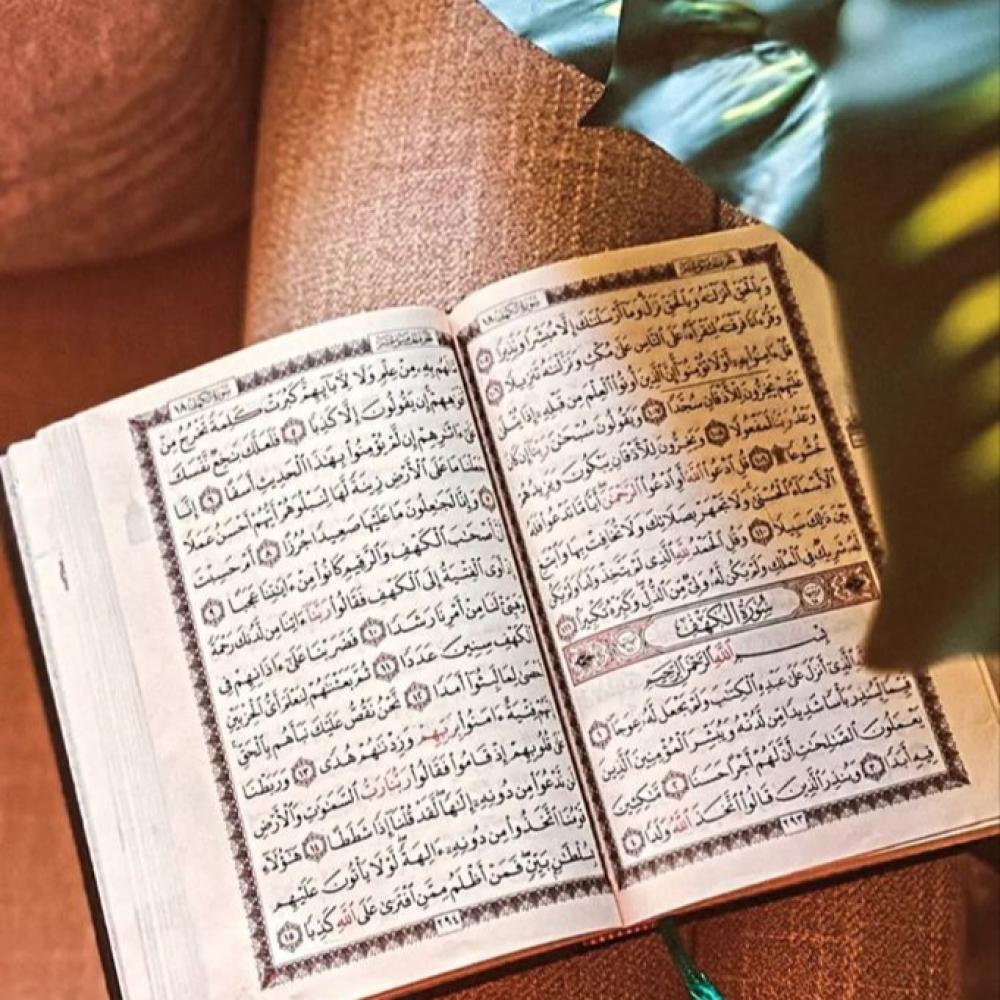 سُورَةُ الكَهْفِ ١٨
وَبِٱلْحَقِّ أَنزَلْنَٰهُ وَبِٱلْحَقِّ نَزَلَ وَمَآ أَرْسَلْنَٰكَ إِلَّا مُبَشِّرًا وَنَذِيرًا ١٠٥
وَقُرْءَانًا فَرَقْنَٰهُ لِتَقْرَأَهُۥ عَلَى ٱلنَّاسِ عَلَىٰ مُكْثٍ وَنَزَّلْنَٰهُ تَنزِيلًا ١٠٦
قُلْ ءَامِنُوا۟ بِهِۦٓ أَوْ لَا تُؤْمِنُوٓا۟ إِنَّ ٱلَّذِينَ أُوتُوا۟ ٱلْعِلْمَ مِن قَبْلِهِۦٓ إِذَا يُتْلَىٰ
عَلَيْهِمْ يَخِرُّونَ لِلْأَذْقَانِ سُجَّدًا ١٠٧ وَيَقُولُونَ سُبْحَٰنَ رَبِّنَآ إِن كَانَ
وَعْدُ رَبِّنَا لَمَفْعُولًا ١٠٨ وَيَخِرُّونَ لِلْأَذْقَانِ يَبْكُونَ وَيَزِيدُهُمْ
خُشُوعًا ۩ ١٠٩ قُلِ ٱدْعُوا۟ ٱللَّهَ أَوِ ٱدْعُوا۟ ٱلرَّحْمَٰنَ أَيًّا مَّا تَدْعُوا۟ فَلَهُ
ٱلْأَسْمَآءُ ٱلْحُسْنَىٰ وَلَا تَجْهَرْ بِصَلَاتِكَ وَلَا تُخَافِتْ بِهَا وَٱبْتَغِ
بَيْنَ ذَٰلِكَ سَبِيلًا ١١٠ وَقُلِ ٱلْحَمْدُ لِلَّهِ ٱلَّذِى لَمْ يَتَّخِذْ وَلَدًا وَلَمْ يَكُن
لَّهُۥ شَرِيكٌ فِى ٱلْمُلْكِ وَلَمْ يَكُن لَّهُۥ وَلِىٌّ مِّنَ ٱلذُّلِّ وَكَبِّرْهُ تَكْبِيرًۢا ١١١
سُورَةُ الكَهْفِ
بِسْمِ ٱللَّهِ ٱلرَّحْمَٰنِ ٱلرَّحِيمِ
ٱلَّذِىٓ أَنزَلَ عَلَىٰ عَبْدِهِ ٱلْكِتَٰبَ وَلَمْ يَجْعَل لَّهُۥ عِوَجَا ١
قَيِّمًا لِّيُنذِرَ بَأْسًا شَدِيدًا مِّن لَّدُنْهُ وَيُبَشِّرَ ٱلْمُؤْمِنِينَ ٱلَّذِينَ
يَعْمَلُونَ ٱلصَّٰلِحَٰتِ أَنَّ لَهُمْ أَجْرًا حَسَنًا ٢ مَّٰكِثِينَ
فِيهِ أَبَدًا ٣ وَيُنذِرَ ٱلَّذِينَ قَالُوا۟ ٱتَّخَذَ ٱللَّهُ وَلَدًا ٤
٢٩٣
سُورَةُ الكَهْفِ ١٨
بِهِۦ مِنْ عِلْمٍ وَلَا لِءَابَآئِهِمْ كَبُرَتْ كَلِمَةً تَخْرُجُ مِنْ
أَفْوَٰهِهِمْ إِن يَقُولُونَ إِلَّا كَذِبًا ٥ فَلَعَلَّكَ بَٰخِعٌ نَّفْسَكَ
عَلَىٰٓ ءَاثَٰرِهِمْ إِن لَّمْ يُؤْمِنُوا۟ بِهَٰذَا ٱلْحَدِيثِ أَسَفًا ٦ إِنَّا
جَعَلْنَا مَا عَلَى ٱلْأَرْضِ زِينَةً لَّهَا لِنَبْلُوَهُمْ أَيُّهُمْ أَحْسَنُ عَمَلًا
٧ وَإِنَّا لَجَٰعِلُونَ مَا عَلَيْهَا صَعِيدًا جُرُزًا ٨ أَمْ حَسِبْتَ
أَنَّ أَصْحَٰبَ ٱلْكَهْفِ وَٱلرَّقِيمِ كَانُوا۟ مِنْ ءَايَٰتِنَا عَجَبًا ٩
أَوَى ٱلْفِتْيَةُ إِلَى ٱلْكَهْفِ فَقَالُوا۟ رَبَّنَآ ءَاتِنَا مِن لَّدُنكَ رَحْمَةً
وَهَيِّئْ لَنَا مِنْ أَمْرِنَا رَشَدًا ١٠ فَضَرَبْنَا عَلَىٰٓ ءَاذَانِهِمْ فِى
ٱلْكَهْفِ سِنِينَ عَدَدًا ١١ ثُمَّ بَعَثْنَٰهُمْ لِنَعْلَمَ أَىُّ ٱلْحِزْبَيْنِ
أَحْصَىٰ لِمَا لَبِثُوٓا۟ أَمَدًا ١٢ نَّحْنُ نَقُصُّ عَلَيْكَ نَبَأَهُم بِٱلْحَقِّ
إِنَّهُمْ فِتْيَةٌ ءَامَنُوا۟ بِرَبِّهِمْ وَزِدْنَٰهُمْ هُدًى ١٣ وَرَبَطْنَا
عَلَىٰ قُلُوبِهِمْ إِذْ قَامُوا۟ فَقَالُوا۟ رَبُّنَا رَبُّ ٱلسَّمَٰوَٰتِ وَٱلْأَرْضِ
لَن نَّدْعُوَا۟ مِن دُونِهِۦٓ إِلَٰهًا لَّقَدْ قُلْنَآ إِذًا شَطَطًا ١٤ هَٰٓؤُلَآءِ
قَوْمُنَا ٱتَّخَذُوا۟ مِن دُونِهِۦٓ ءَالِهَةً لَّوْلَا يَأْتُونَ عَلَيْهِم
بِسُلْطَٰنٍۭ بَيِّنٍ فَمَنْ أَظْلَمُ مِمَّنِ ٱفْتَرَىٰ عَلَى ٱللَّهِ كَذِبًا ١٥
٢٩٤